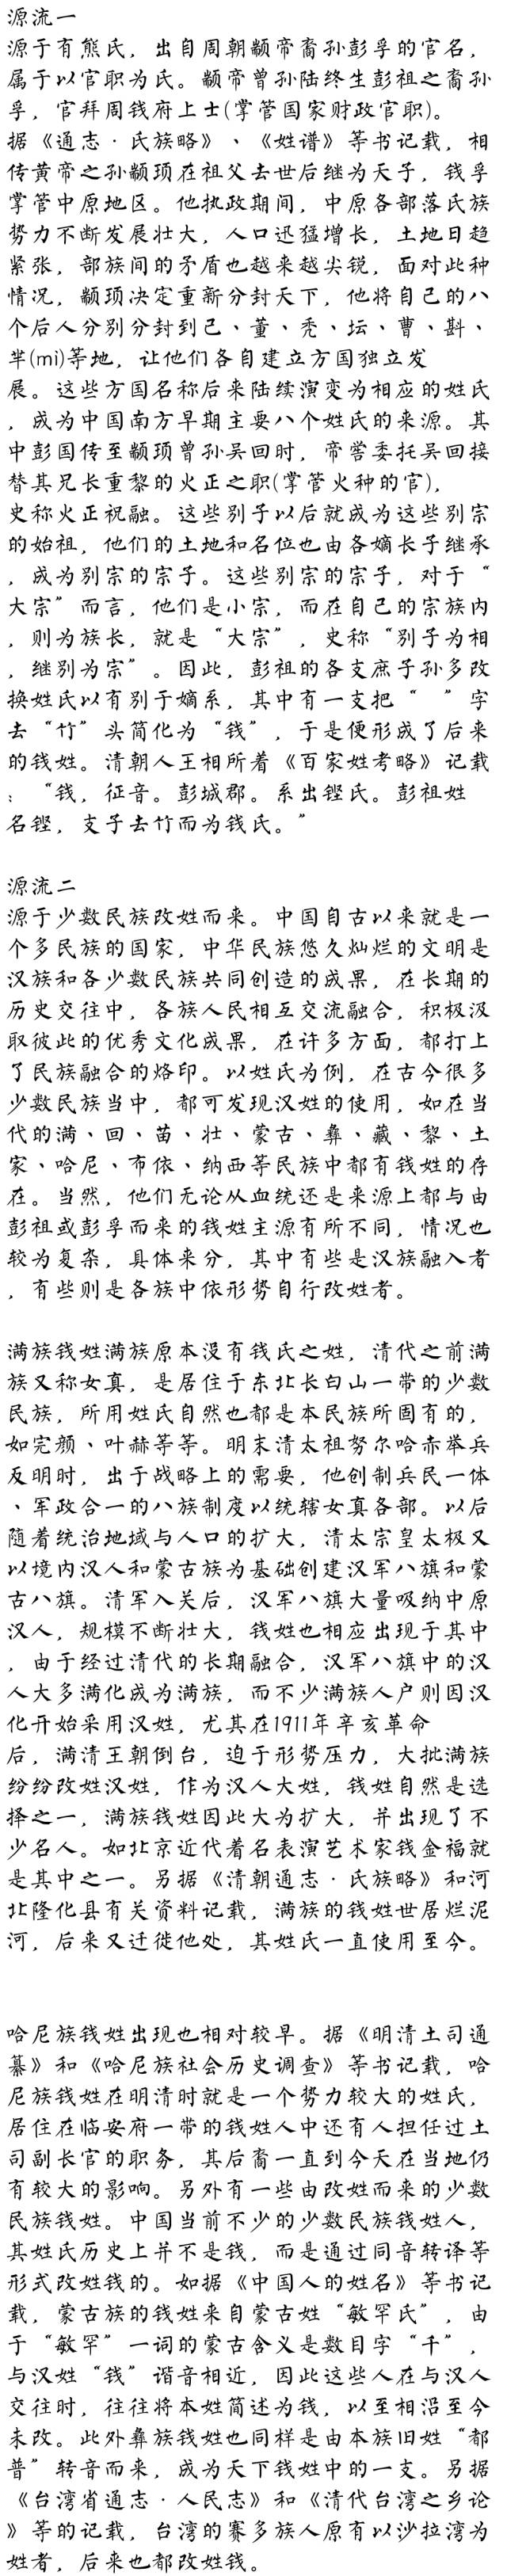 源流一
源于有熊氏，出自周朝颛帝裔孙彭孚的官名，
属于以官职为氏。颛帝曾孙陆终生彭祖之裔孙
孚，官拜周钱府上士(掌管国家财政官职)。
据《通志·氏族略》、《姓谱》等书记载，相
传黄帝之孙颛顼在祖父去世后继为天子，钱孚
掌管中原地区。他执政期间，中原各部落氏族
势力不断发展壮大，人口迅猛增长，土地日趋
紧张，部族间的矛盾也越来越尖锐，面对此种
情况，颛顼决定重新分封天下，他将自己的八
个后人分别分封到己、董、秃、坛、曹、斟、
芈(mi)等地，让他们各自建立方国独立发
展。这些方国名称后来陆续演变为相应的姓氏
，成为中国南方早期主要八个姓氏的来源。其
中彭国传至颛顼曾孙吴回时，帝喾委托吴回接
替其兄长重黎的火正之职(掌管火种的官)，
史称火正祝融。这些别子以后就成为这些别宗
的始祖，他们的土地和名位也由各嫡长子继承
，成为别宗的宗子。这些别宗的宗子，对于“
大宗”而言，他们是小宗，而在自己的宗族内
，则为族长，就是“大宗”，史称“别子为相
，继别为宗”。因此，彭祖的各支庶子孙多改
换姓氏以有别于嫡系，其中有一支把“ ”字
去“竹”头简化为“钱”，于是便形成了后来
的钱姓。清朝人王相所着《百家姓考略》记载
：“钱，征音。彭城郡。系出铿氏。彭祖姓
名铿，支子去竹而为钱氏。”

源流二
源于少数民族改姓而来。中国自古以来就是一
个多民族的国家，中华民族悠久灿烂的文明是
汉族和各少数民族共同创造的成果，在长期的
历史交往中，各族人民相互交流融合，积极汲
取彼此的优秀文化成果，在许多方面，都打上
了民族融合的烙印。以姓氏为例，在古今很多
少数民族当中，都可发现汉姓的使用，如在当
代的满、回、苗、壮、蒙古、彝、藏、黎、土
家、哈尼、布依、纳西等民族中都有钱姓的存
在。当然，他们无论从血统还是来源上都与由
彭祖或彭孚而来的钱姓主源有所不同，情况也
较为复杂，具体来分，其中有些是汉族融入者
，有些则是各族中依形势自行改姓者。

满族钱姓满族原本没有钱氏之姓，清代之前满
族又称女真，是居住于东北长白山一带的少数
民族，所用姓氏自然也都是本民族所固有的，
如完颜、叶赫等等。明末清太祖努尔哈赤举兵
反明时，出于战略上的需要，他创制兵民一体
、军政合一的八族制度以统辖女真各部。以后
随着统治地域与人口的扩大，清太宗皇太极又
以境内汉人和蒙古族为基础创建汉军八旗和蒙
古八旗。清军入关后，汉军八旗大量吸纳中原
汉人，规模不断壮大，钱姓也相应出现于其中
，由于经过清代的长期融合，汉军八旗中的汉
人大多满化成为满族，而不少满族人户则因汉
化开始采用汉姓，尤其在1911年辛亥革命
后，满清王朝倒台，迫于形势压力，大批满族
纷纷改姓汉姓，作为汉人大姓，钱姓自然是选
择之一，满族钱姓因此大为扩大，并出现了不
少名人。如北京近代着名表演艺术家钱金福就
是其中之一。另据《清朝通志·氏族略》和河
北隆化县有关资料记载，满族的钱姓世居烂泥
河，后来又迁徙他处，其姓氏一直使用至今。

哈尼族钱姓出现也相对较早。据《明清土司通
纂》和《哈尼族社会历史调查》等书记载，哈
尼族钱姓在明清时就是一个势力较大的姓氏，
居住在临安府一带的钱姓人中还有人担任过土
司副长官的职务，其后裔一直到今天在当地仍
有较大的影响。另外有一些由改姓而来的少数
民族钱姓。中国当前不少的少数民族钱姓人，
其姓氏历史上并不是钱，而是通过同音转译等
形式改姓钱的。如据《中国人的姓名》等书记
载，蒙古族的钱姓来自蒙古姓“敏罕氏”，由
于“敏罕”一词的蒙古含义是数目字“千”，
与汉姓“钱”谐音相近，因此这些人在与汉人
交往时，往往将本姓简述为钱，以至相沿至今
未改。此外彝族钱姓也同样是由本族旧姓“都
普”转音而来，成为天下钱姓中的一支。另据
《台湾省通志·人民志》和《清代台湾之乡论
》等的记载，台湾的赛多族人原有以沙拉湾为
姓者，后来也都改姓钱。